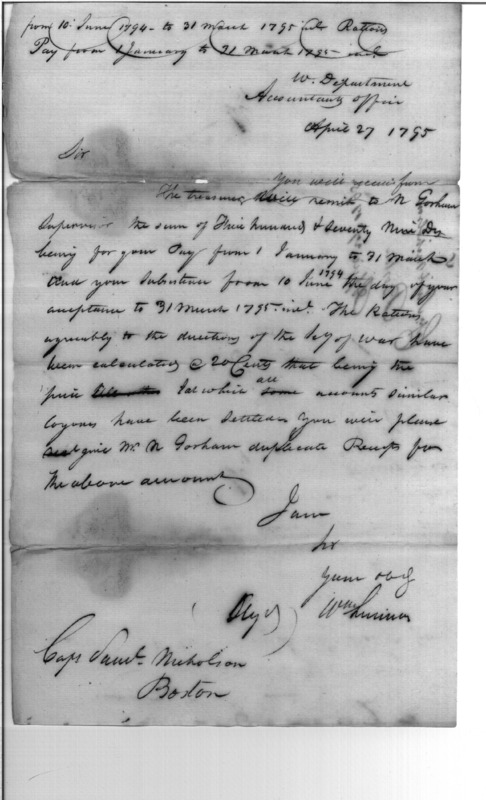 from 10 June 1794 to 31 March 1795 incl. Rations
Pay from 1 January to 31 March 1795 incl.
W. Department
Accountants Office
April 27 1795
Sir
you will receive from
The treasurer will remit to N Gorham
Supervisor the sum of Three hundred & seventy Nine Drs
being for your Pay from 1 January to 31 March
and your Subsistence from 10 June 1794 the day of your
acceptance to 31 March 1795 incl. The Rations
agreeably to the directions of the Secy of War have
been calculated @ 20 Cents that being the
price at which all some accounts similar
to yours have been settled you will please
give Mr N Gorham duplicate Receipts for
the above amount
I am
Sir
your obt
(Signed) Wm Simmons
Capt Saml. Nicholson
Boston